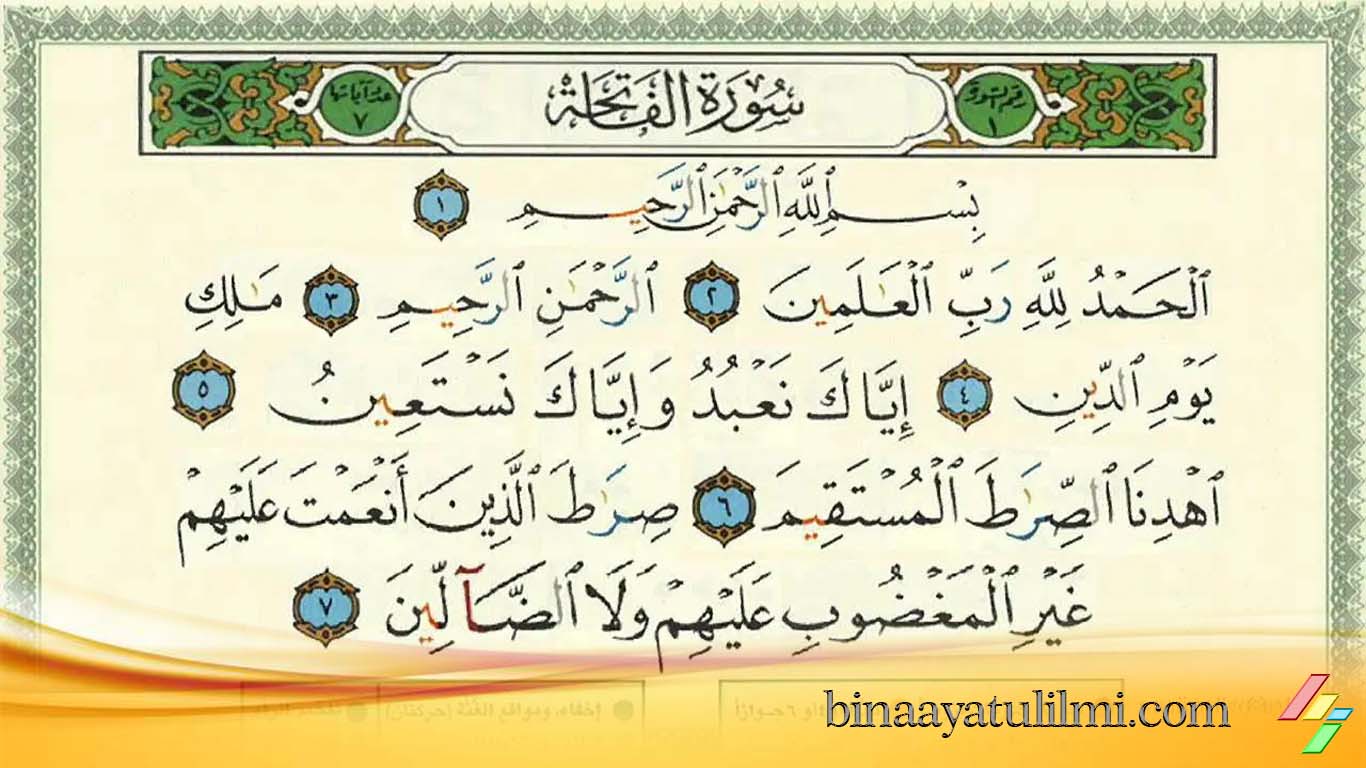 عدد آياتها ٧
سُورَةُ الْفَاتِحَةِ
رقم السورة ١
بِسْمِ ٱللَّهِ ٱلرَّحْمَٰنِ ٱلرَّحِيمِ ١
ٱلْحَمْدُ لِلَّهِ رَبِّ ٱلْعَٰلَمِينَ ٢ ٱلرَّحْمَٰنِ ٱلرَّحِيمِ ٣ مَٰلِكِ
يَوْمِ ٱلدِّينِ ٤ إِيَّاكَ نَعْبُدُ وَإِيَّاكَ نَسْتَعِينُ ٥
ٱهْدِنَا ٱلصِّرَٰطَ ٱلْمُسْتَقِيمَ ٦ صِرَٰطَ ٱلَّذِينَ أَنْعَمْتَ عَلَيْهِمْ
غَيْرِ ٱلْمَغْضُوبِ عَلَيْهِمْ وَلَا ٱلضَّآلِّينَ ٧
إخفاء، ومواقع الغُنَّة (حركتان)
binaayatulilmi.com